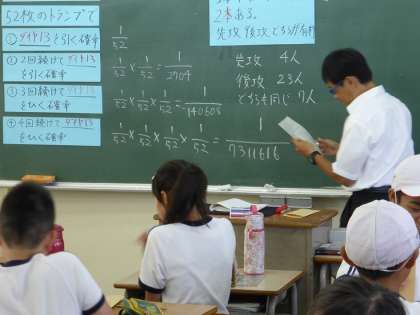 52枚のトランプで
①ダイヤ13を引く確率
②2回続けてダイヤ13
を引く確率
③3回続けてダイヤ13
をひく確率
④4回続けてダイヤ13
をひく確率
1/52
1/52 × 1/52 = 1/2704
1/52 × 1/52 × 1/52 = 1/140608
1/52 × 1/52 × 1/52 × 1/52 = 1/7311616
2本ある。
先攻後攻どちらが有利
先攻 4人
後攻 23人
どちらも同じ 7人